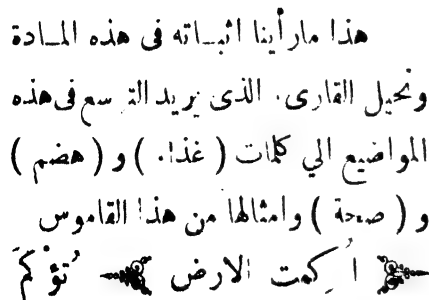 هذا مارأينا اثبــاته فى هذه المــادة
ونحيل القارى، الذى يريد التوسع فى هذه
المواضيع الي كلمات ( غذاء ) و ( هضم )
و ( صحة ) وامثالها من هذا القاموس
اُكمت الارض تُؤْكَم